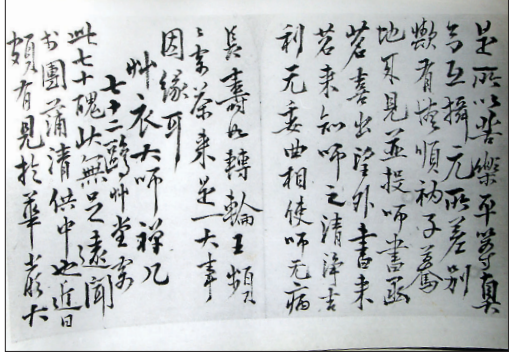 是所以苦樂平等真
互攝无所差別
歟有順衲子驀
地來見並投師書函
茗喜出望外書來
茗來知師之清淨吉
利无委曲相使師无病
長壽如轉輪王頻
〻寄茶來是一大事
因緣耳
艸衣大師禪几
七十二鷗艸堂
此七十醜此無足遠聞
於團蒲清供中也近日
頗有見於華嚴六